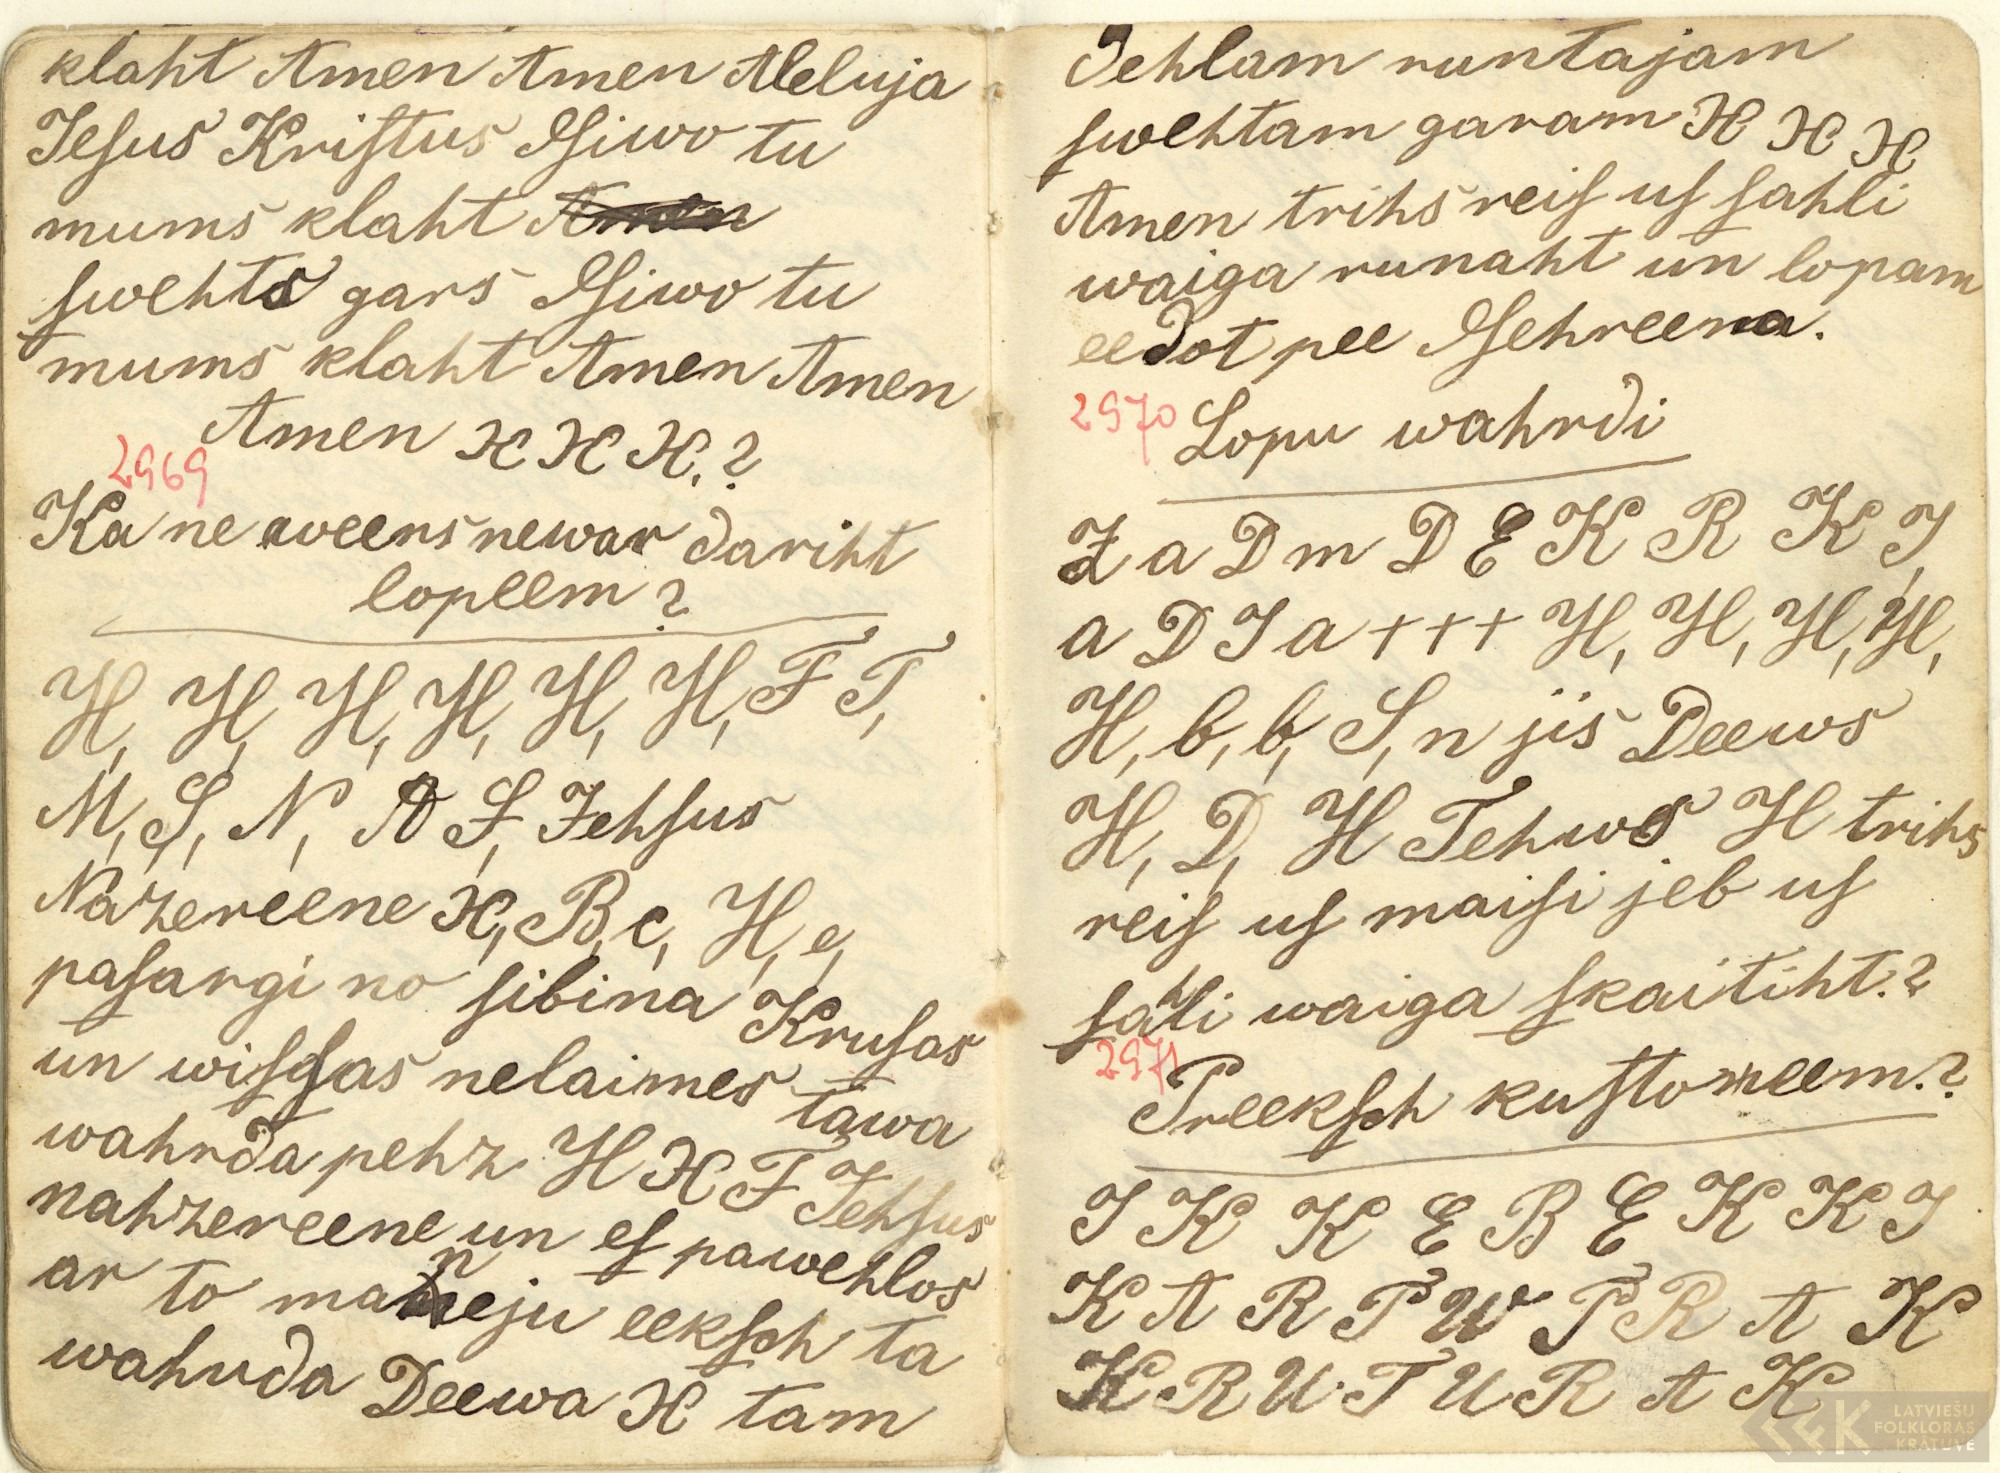 klaht Amen Amen Aleluja
Jeſus Kriſtus Eſi wo tu
mums klaht Amen
ſwehts gars Eſi wo tu
mums klaht Amen Amen
Amen H H H.?
2969
Ka neweens newar dariht
lopeem?
H, H, H, H, H, H, F T,
M, S, N, A S, Jehſus
Nazereene H, B, c, H, e,
paſargi no ſibina Kruſas
un wiſſas nelaimes tawa
wahrda pehz H H F Jehſus
nahzereene un eſ pawehlos
ar to maneju eekſch ta
wahrda Deewa H tam
Dehlam runtajam
ſwehtam garam H H H
Amen trihs reiſ uſ ſahli
waiga runaht un lopam
eedot pee Eſehreena.
2970
Lopu wahrdi
Z a D m D E K R K J,
a D J a + + + H, H, H, H,
H, b, b, S, n jis Deews
H, D, H Tehws H trihs
reiſ uſ maiſi jeb uſ
ſahli waiga ſkaitiht.?
2971
Preekſch kuſtoneem.?
J K K E B E K K J
K A R P W P R A K
K R U T U R A K
LATVIEŠU
FOLKLORAS
KRĀTUVE